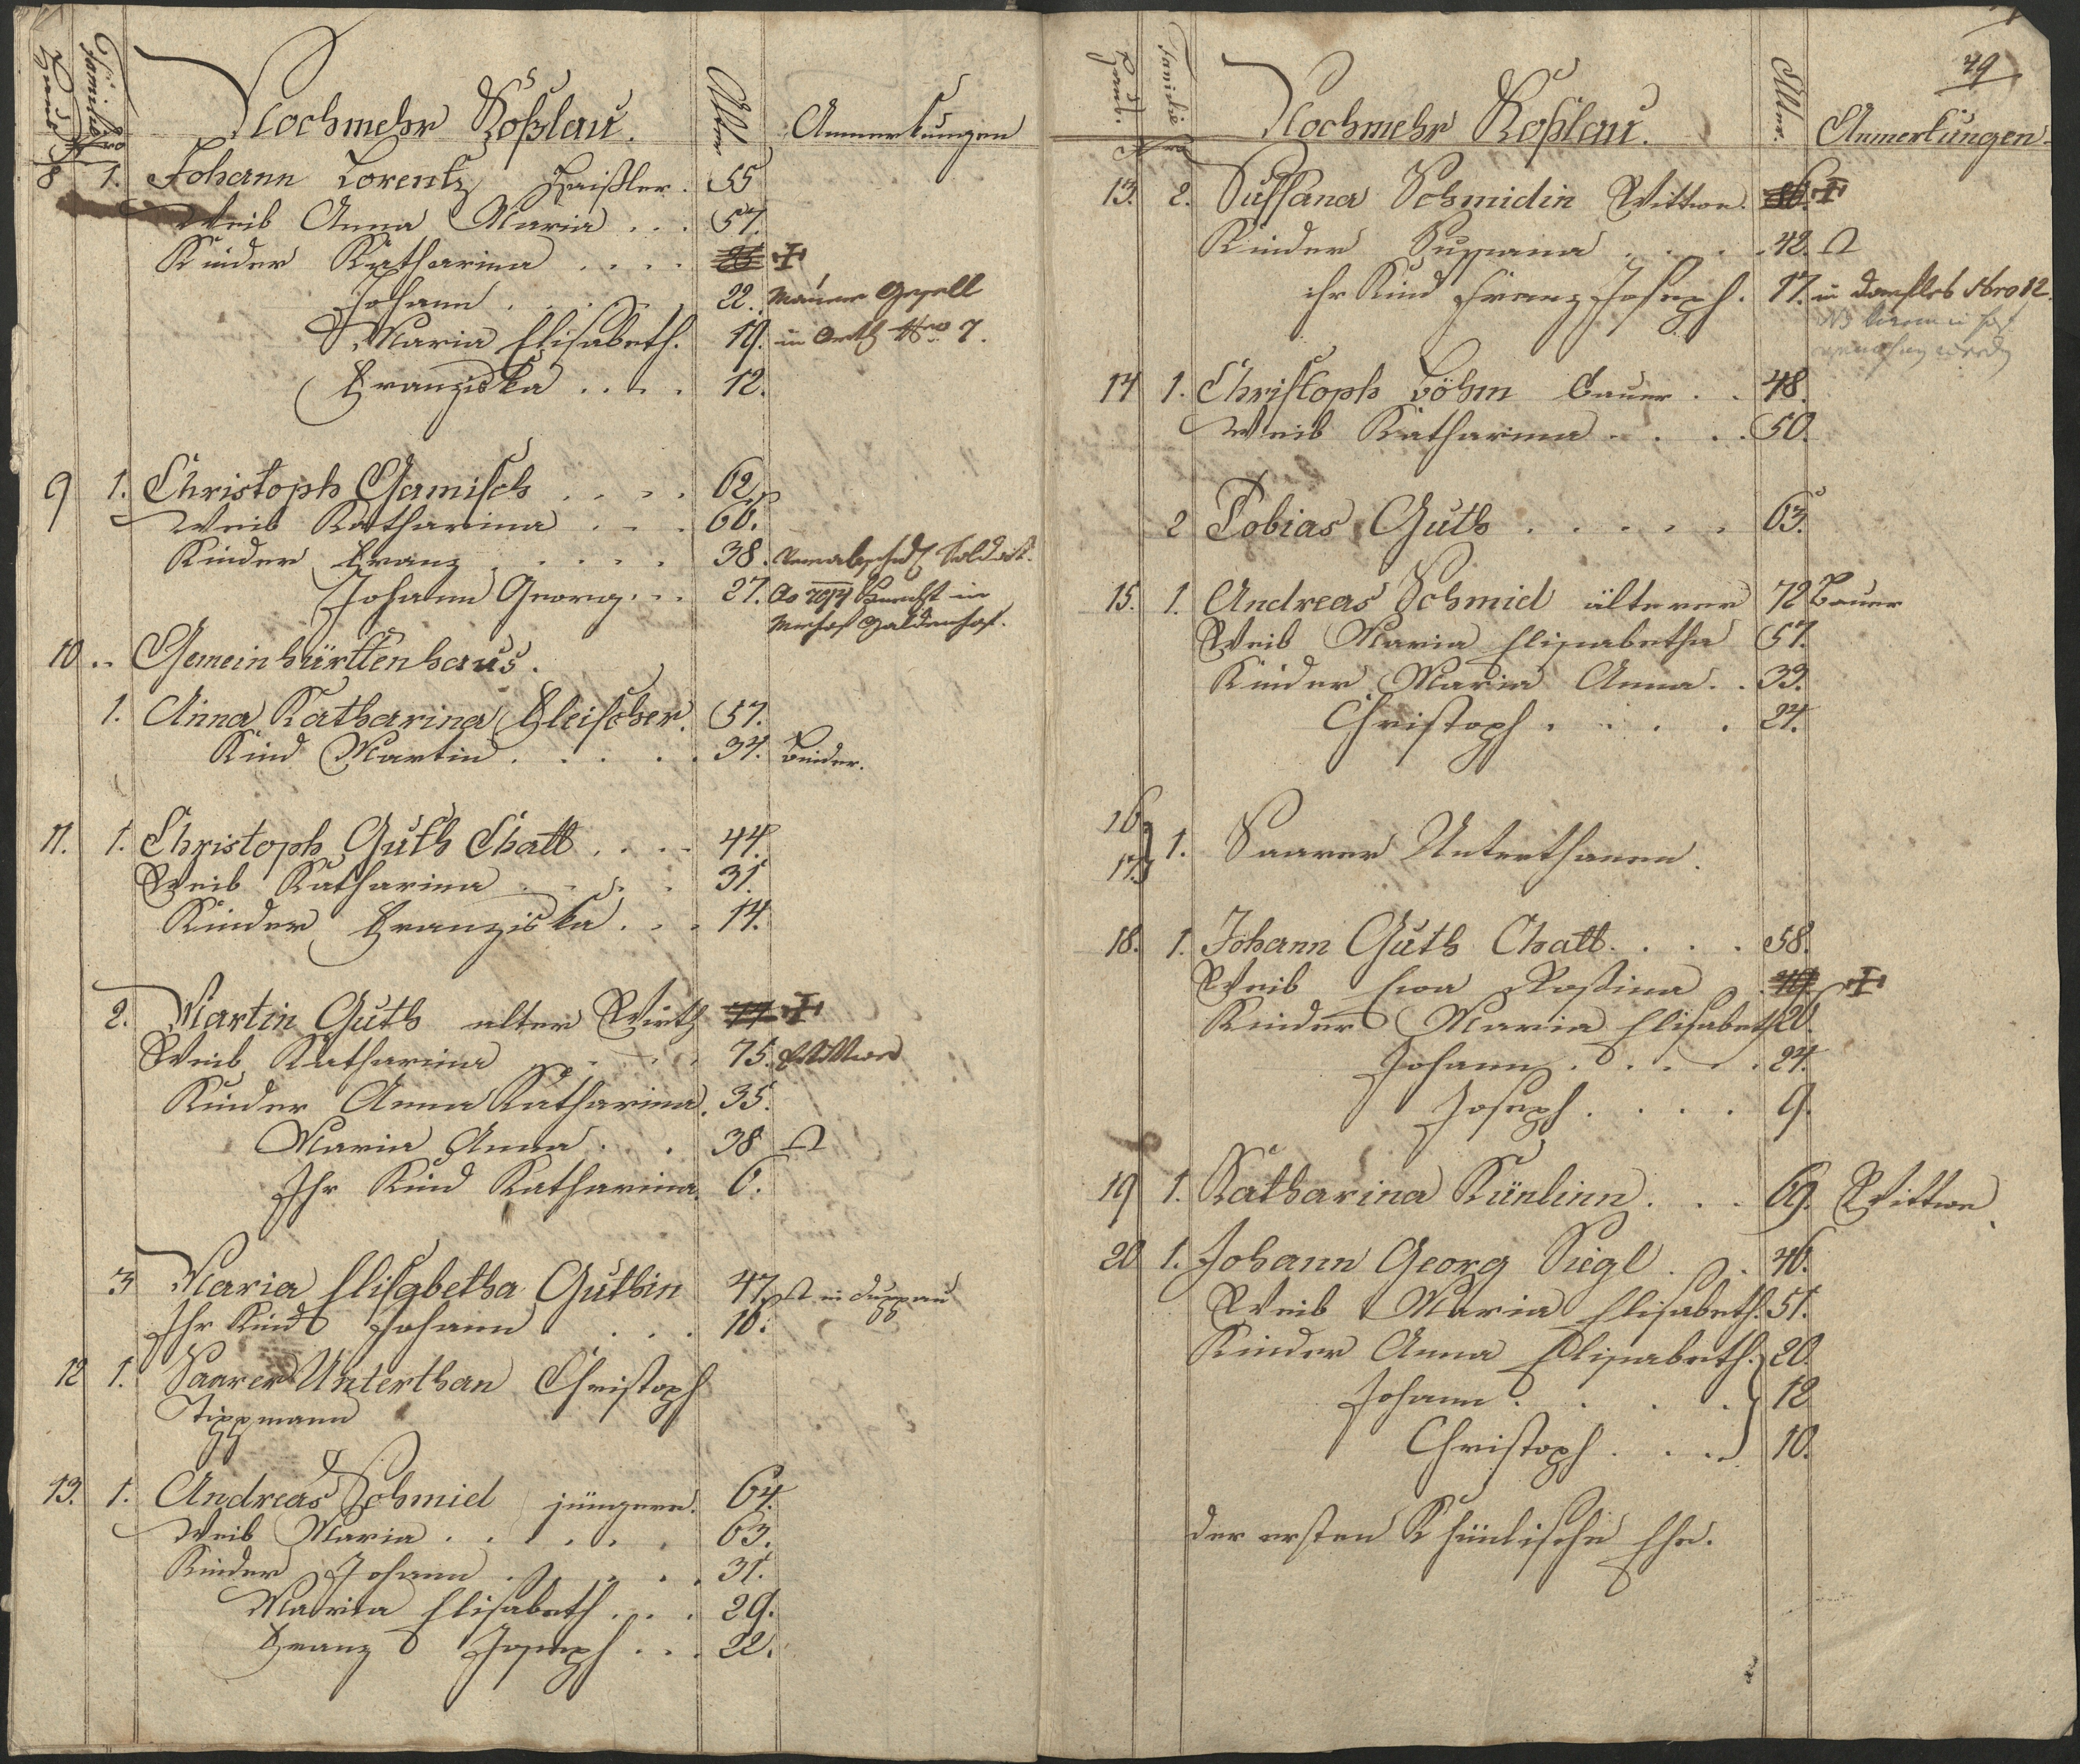 Haus Nro
Familie Nro
Nochmehr Koßlau.
Alter
Anmerkungen
8 1. Johann Lorentz Häißler. 55
Weib Anna Maria . . . 57.
Kinder Katharina . . . .
Johann . . . . 22. Maurer Gesell
Maria Elisabeth. 19. in Orth Nro 7.
Franziska . . . . 12.
9 1. Christoph Gamisch . . . . 62
Weib Katharina . . . 66.
Kinder Franz . . . . . 38. Soldat.
Johann Georg . . . 27.
10 .. Gemeinhürttenhaus.
1. Anna Katharina Fleischer. 57.
Kind Martin . . . . . 34. Binder.
11. 1. Christoph Guth Chatt . . . . 44.
Weib Katharina . . . . 31.
Kinder Franziska . . . 14.
2. Martin Guth alter Wirth
Weib Katharina . . . . 75. Wittwe
Kinder Anna Katharina. 35.
Maria Anna . . . 38
Ihr Kind Katharina. 6.
3 Maria Elisabetha Guthin 47. in Duppau
Ihr Kind Johann . . . . 16.
12 1. Saarer Unterthan Christoph
Tippmann
13. 1. Andreas Schmid jüngere. 64.
Weib Maria . . . . . . 63.
Kinder Johann . . . . . . 31.
Maria Elisabeth . . . . 29.
Franz Joseph . . . 22.
49
Haus Nro
Familie Nro
Nochmehr Koßlau.
Alter.
Anmerkungen.
13. 2. Sussana Schmidin Wittwe.
Kinder Sussana . . . . 42.
ihr Kind Franz Joseph. 17. in Nro 12.
14 1. Christoph Böhm Bauer . . 48.
Weib Katharina . . . . 50.
2 Tobias Guth . . . . . 63.
15. 1. Andreas Schmid älterer 72 Bauer
Weib Maria Elisabetha 57.
Kinder Maria Anna . . 33.
Christoph . . . . 27.
16
17. 1. Saarer Unterthanen.
18. 1. Johann Guth Chatt . . . . 58.
Weib Eva Rosina
Kinder Maria Elisabeth 20.
Johann . . . . . 24.
Joseph . . . . 9.
19 1. Katharina Künlinn . . . 69. Wittwe
20 1. Johann Georg Siegl . . . 46.
Weib Maria Elisabeth. 51.
Kinder Anna Elisabeth. 20.
Johann . . . . 12
Christoph . . . 10.
der ersten Khünlische Ehe.